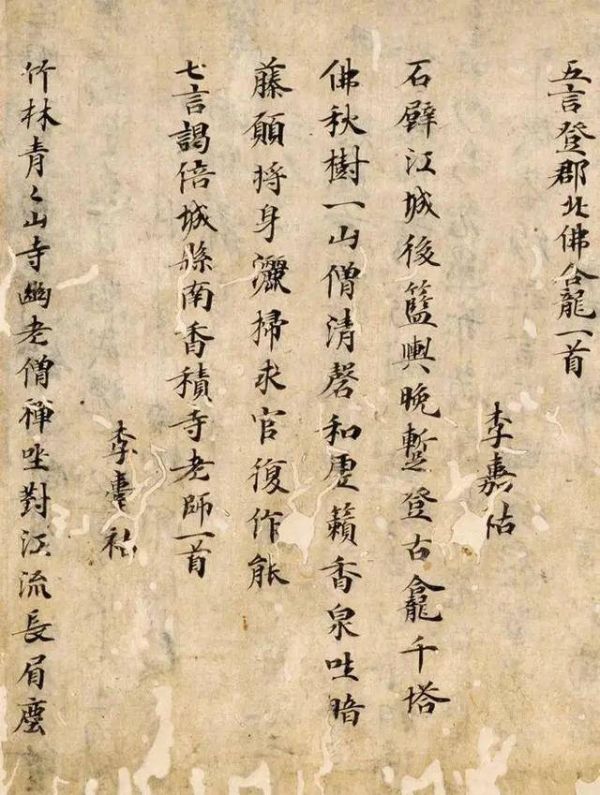 五言登郡北佛龕一首
李嘉祐
石壁江城後籃輿晚蹔登古龕千塔
佛秋樹一山僧清磬和虛籟香泉吐暗
藤願將身灑掃求官復作能
七言謁倍城縣南香積寺老師一首
李嘉祐
竹林青々山寺幽老僧禅坐對江流長眉塵